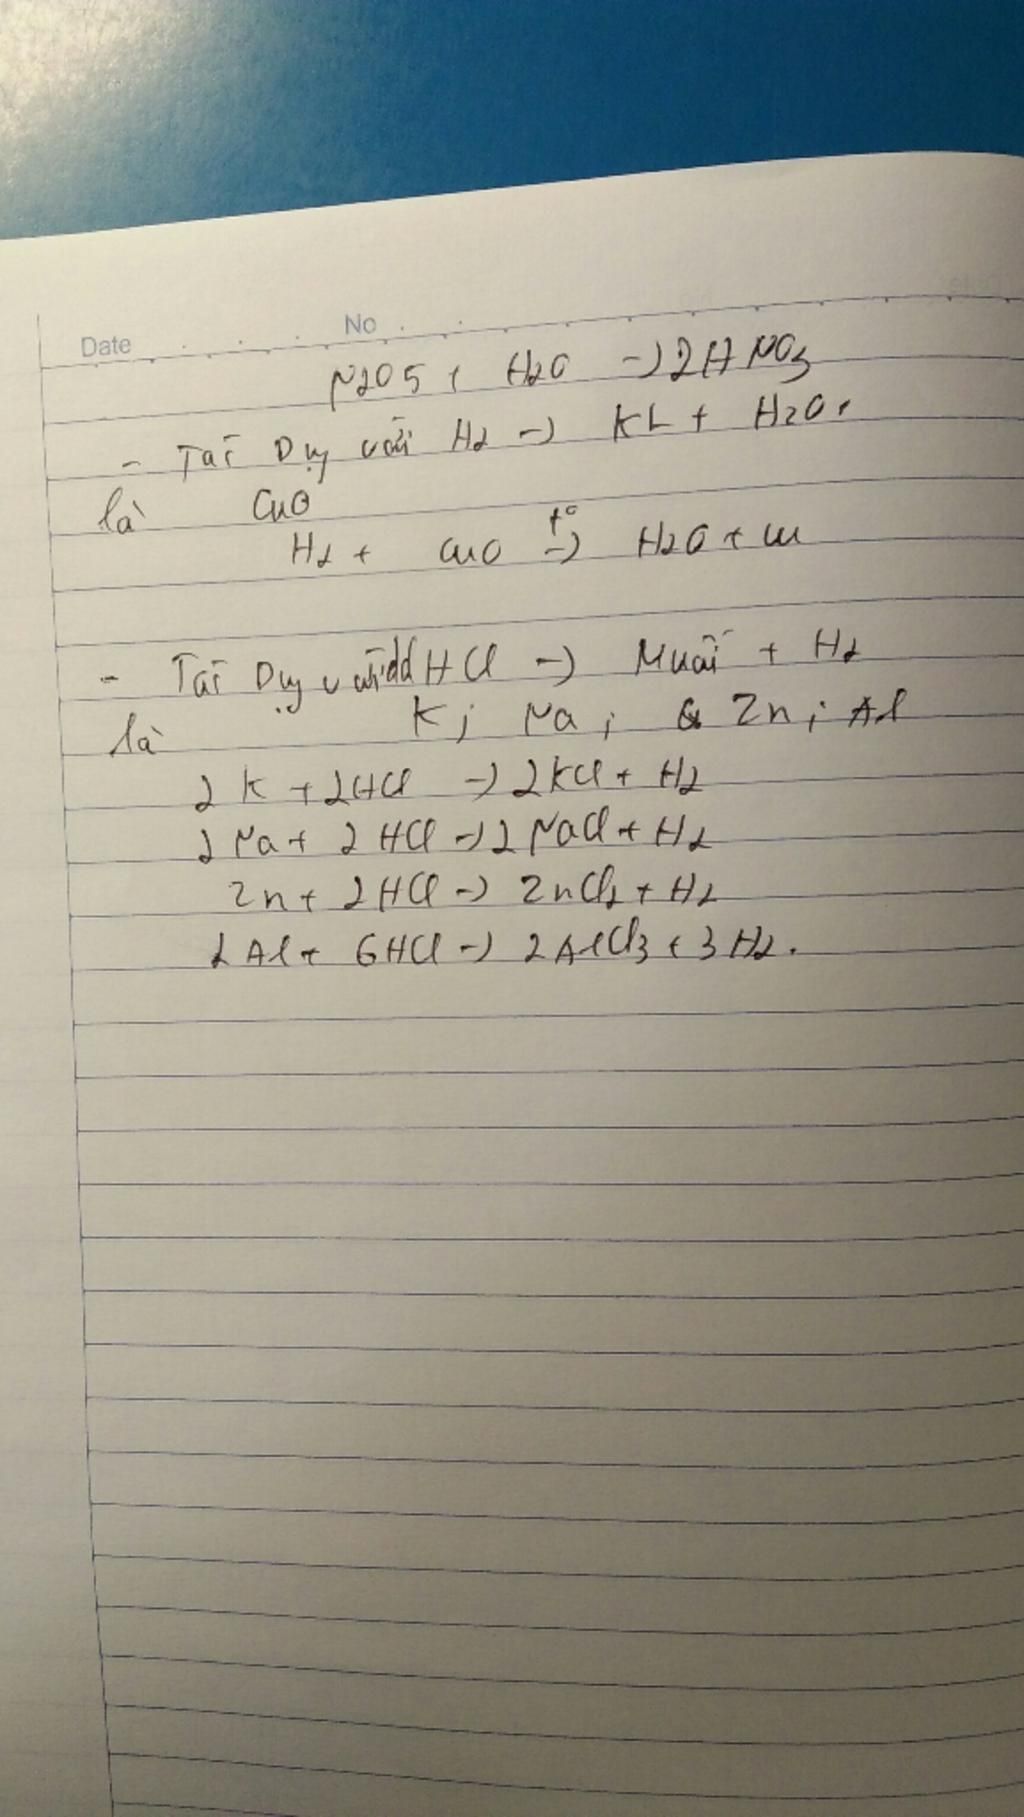 Date No
N2O5 + H2O → 2HNO3
- Tác Dụng với H2 → KL + H2O.
là CuO
H2 + CuO t° → H2O + Cu
- Tác Dụng với dd HCl → Muối + H2
là K; Na; Zn; Al
2K + 2HCl → 2KCl + H2
2Na + 2HCl → 2NaCl + H2
Zn + 2HCl → ZnCl2 + H2
2Al + 6HCl → 2AlCl3 + 3H2.